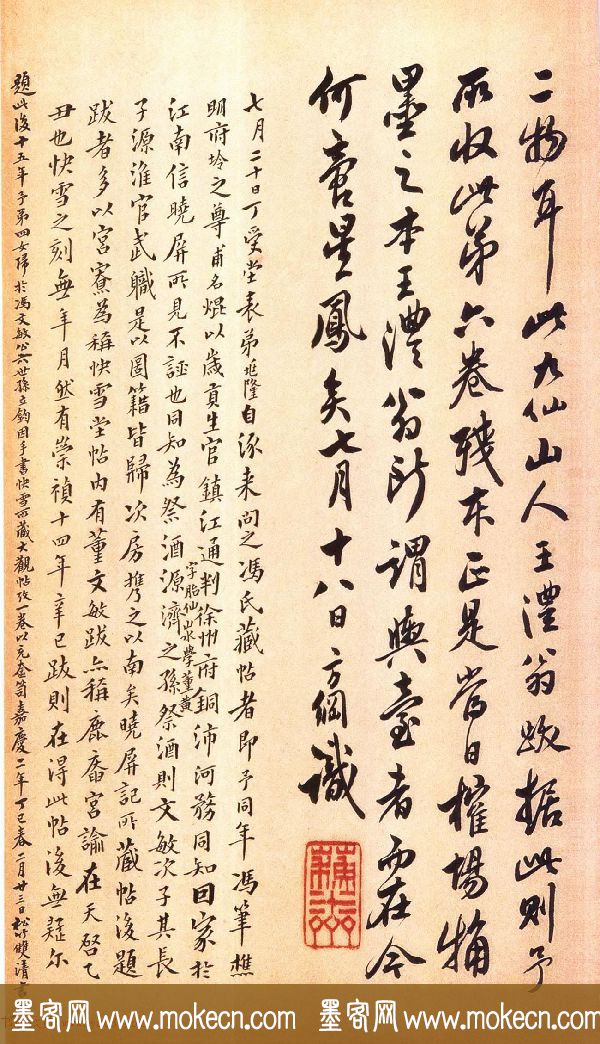 二物耳此九仙山人王澧翁跋据此則予
所收此第六卷殘本正是當日榷場犄
墨之本王澧翁所謂輿臺者而在今
何啻星鳳矣七月十八日方綱識
蘇齋
七月二十日丁受堂表弟兆隆自涿来問之馮氏藏帖者即予同年馮筆樵
明府埁之尊甫名焜以歲貢生官鎮江通判徐州府銅沛河務同知回家於
江南信曉屏所見不誣也同知為祭酒源濟字胎仙亦學董黄之孫祭酒則文敏次子其長
子源淮官武職是以圖籍皆歸次房攜之以南矣曉屏記所藏帖後題
跋者多以宫寮為稱快雪堂帖内有董文敏跋亦稱鹿菴宫諭在天啓乙
丑也快雪之刻無年月然有崇禎十四年辛巳跋則在得此帖後無疑尔
題此後十五年予第四女歸於馮文敏公六世孫立鈞因手書快雪所藏大觀帖攷一卷以充奩笥嘉慶二年丁巳春二月廿三日松竹雙清書
墨客网 www.mokecn.com 墨客网 www.mokecn.com